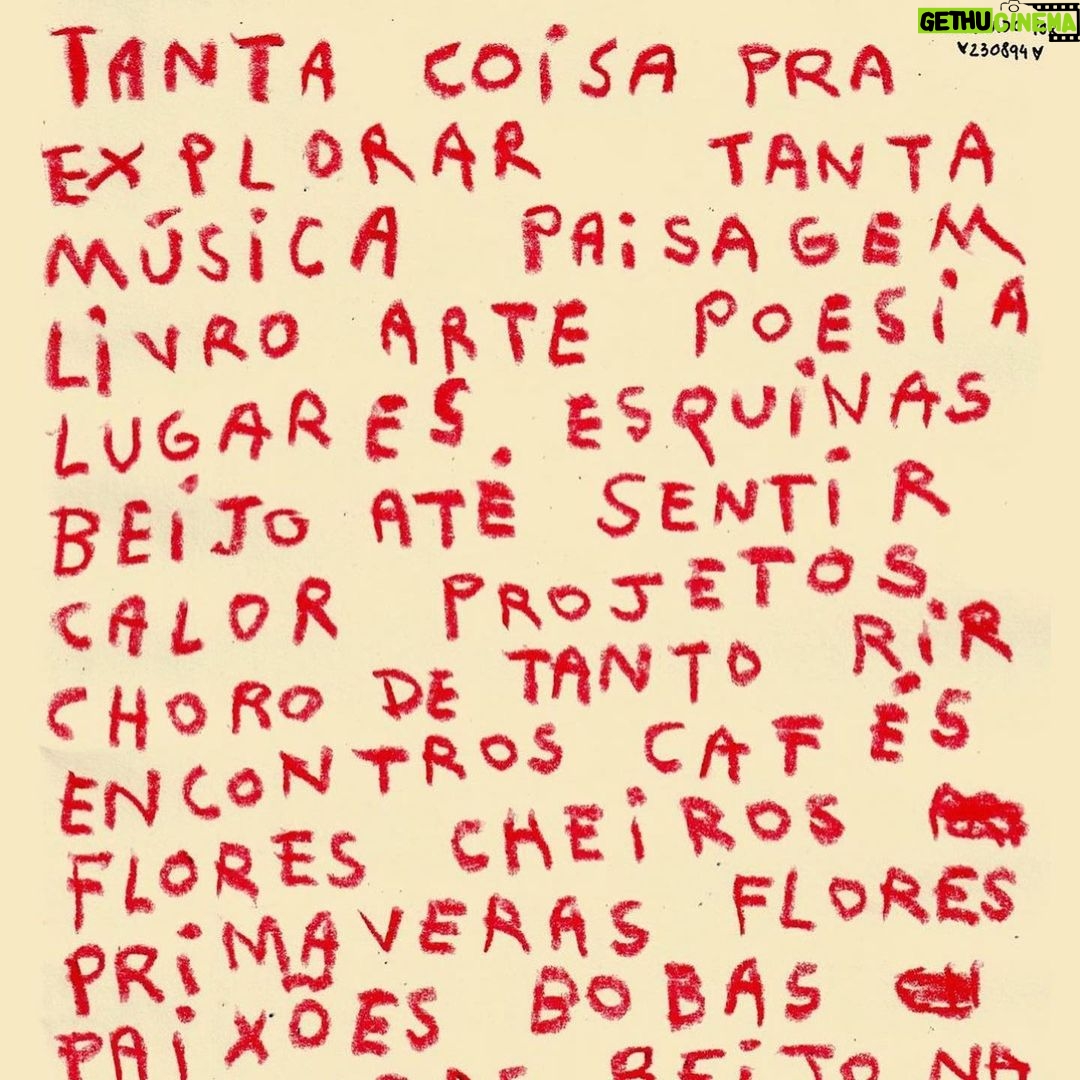 GETHUCINEMA
♥230894♥
TANTA COiSA PRA
EXPLORAR TANTA
MÚSiCA PAiSAGEM
LiVRO ARTE POESiA
LUGARES, ESQUiNAS
BEiJO ATÉ SENTiR
CALOR PROJETOS
CHORO DE TANTO RiR
ENCONTROS CAFÉS
FLORES CHEiROS
PRiMAVERAS FLORES
PAiXÕES BOBAS
BEiJO NA